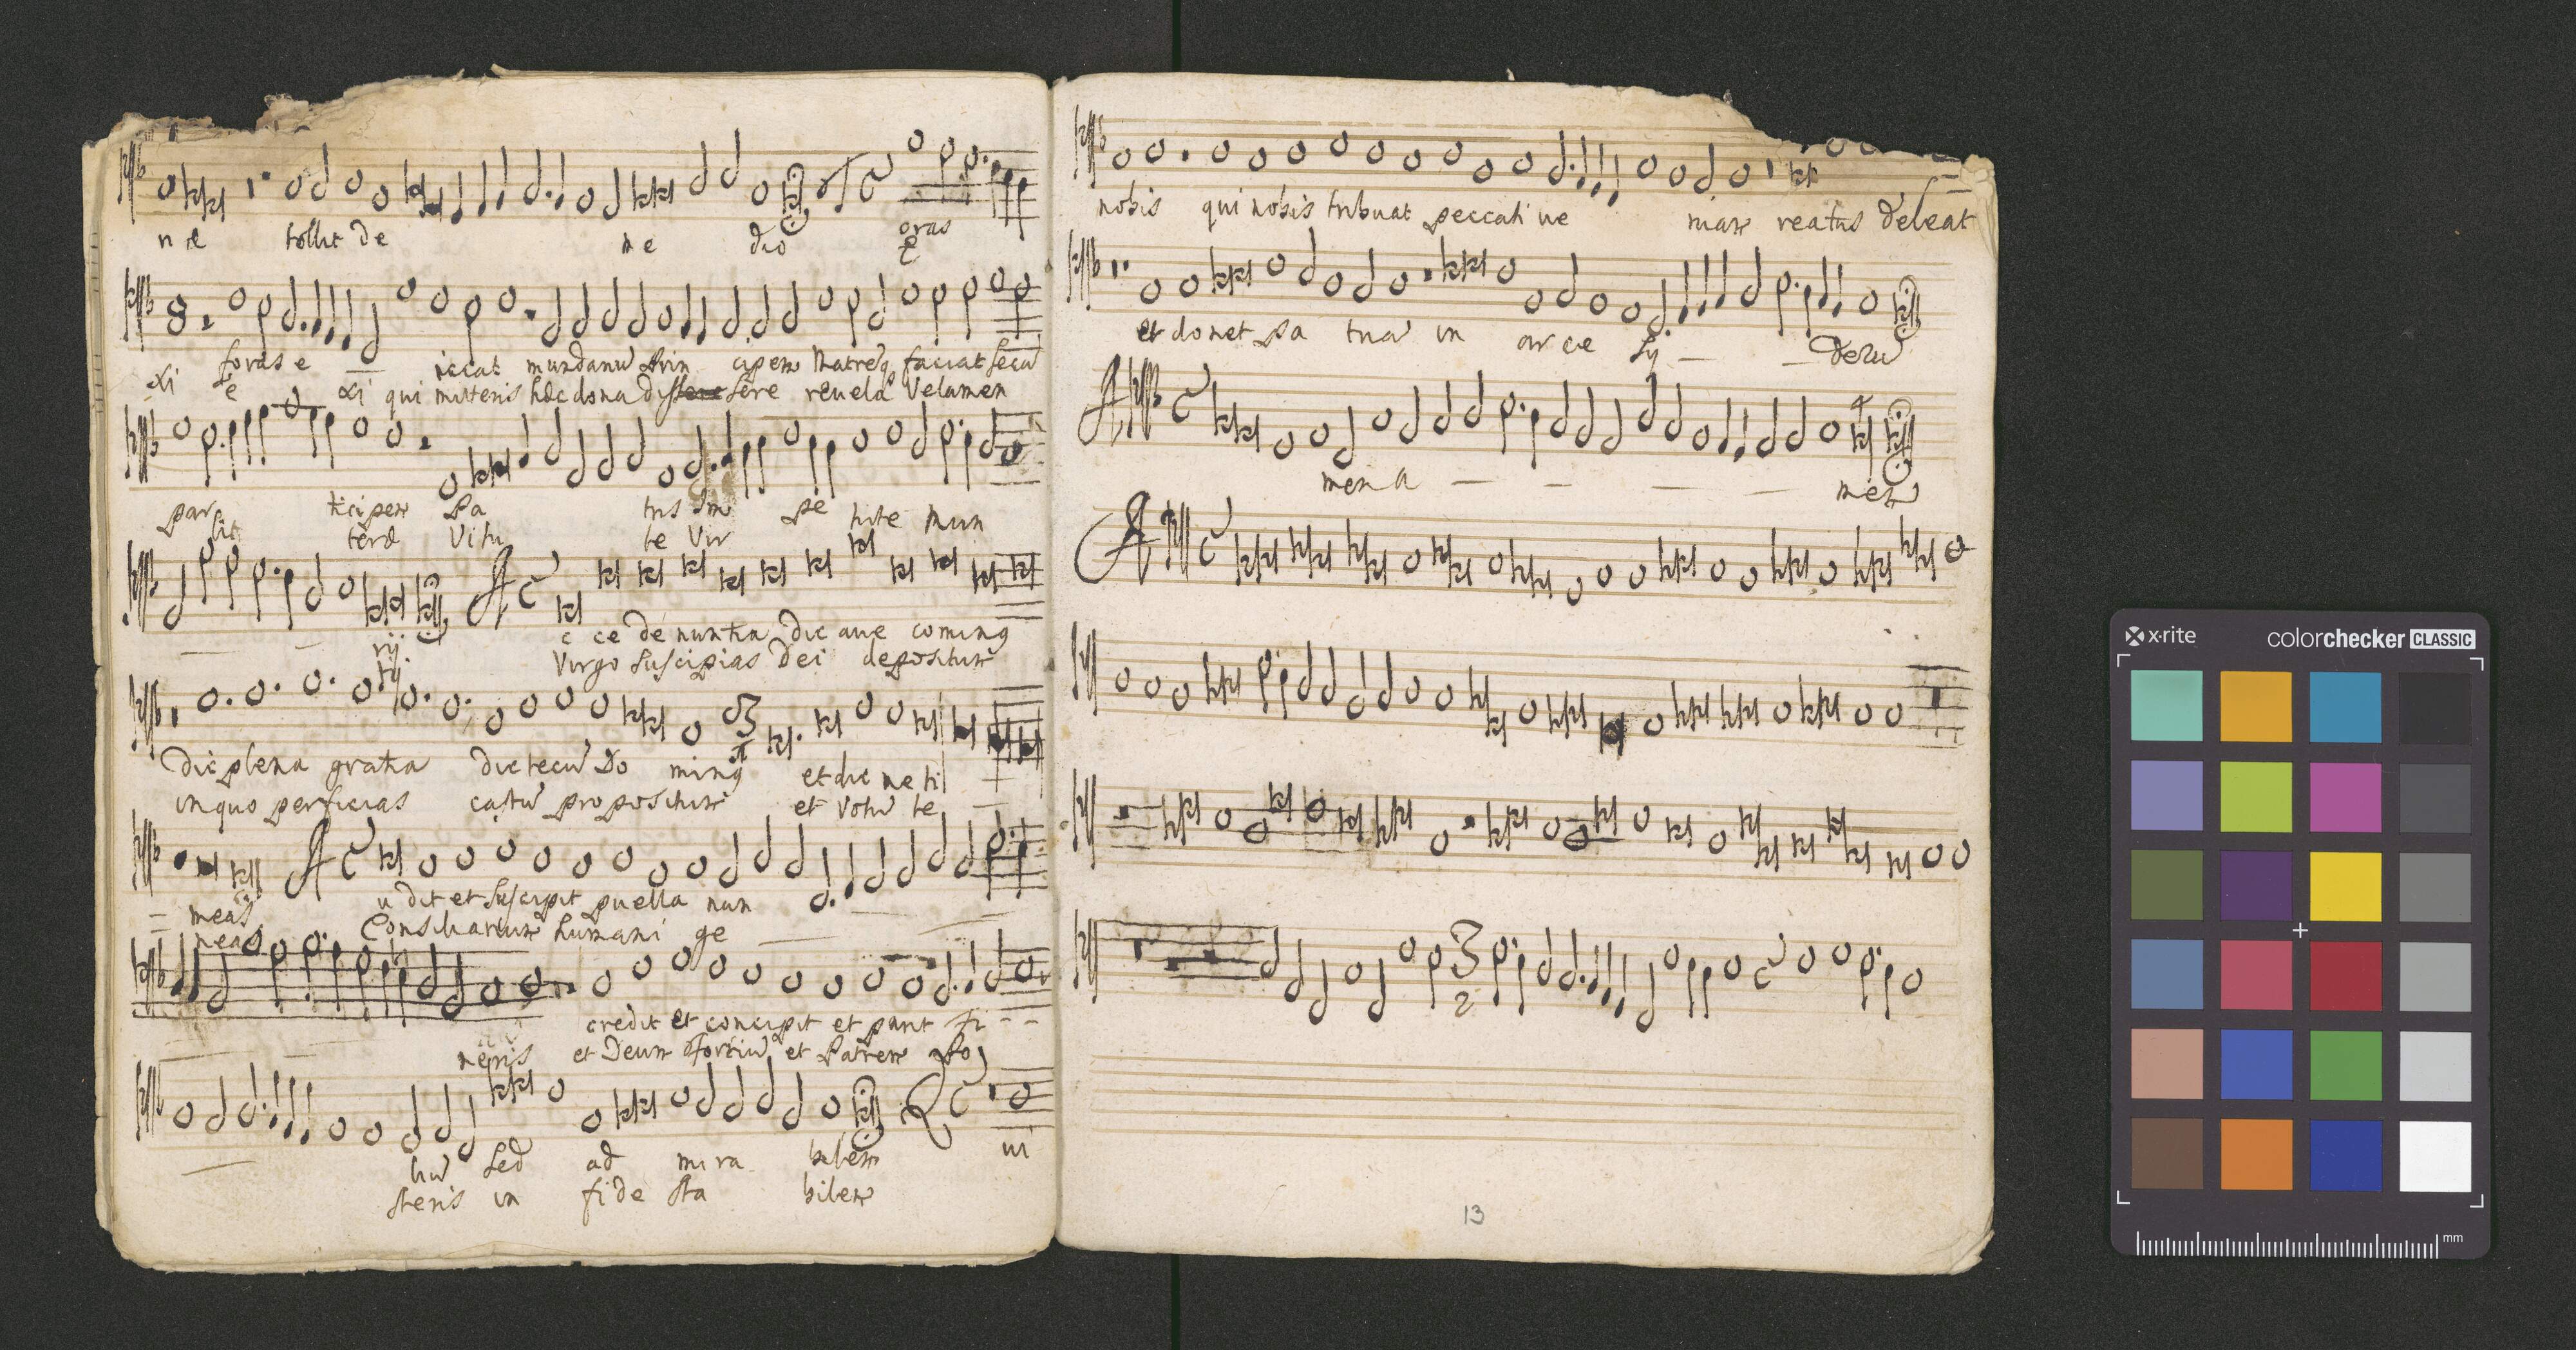 næ tollit de me dio oras
foras e iiciat mundanū Prin cipem Matreq faciat secū
xi e xi qui mitteris hæc dona disserere revela Velamen
par ticipem Pa tris Im pe
lit teræ Vitu te Vir
rij.
c ce denuntia dic ave coming
Virgo suscipias Dei depositum
dic plena gratia dic tecū Do ming et dic ne ti
in quo perficias castū propositum et votū te
meas u dit et suscipit puella nun
neas Consiliarium humani ge
credit et concipit et parit fi
neris et Deum et Patrem Po
liū sed ad mira bilem ui
steris in fide sta bilem
nobis qui nobis tribuat peccati ve niam reatus deleat
et donet pa tria in arce sy derū
A
men a men
A
13
x-rite colorchecker CLASSIC
mm